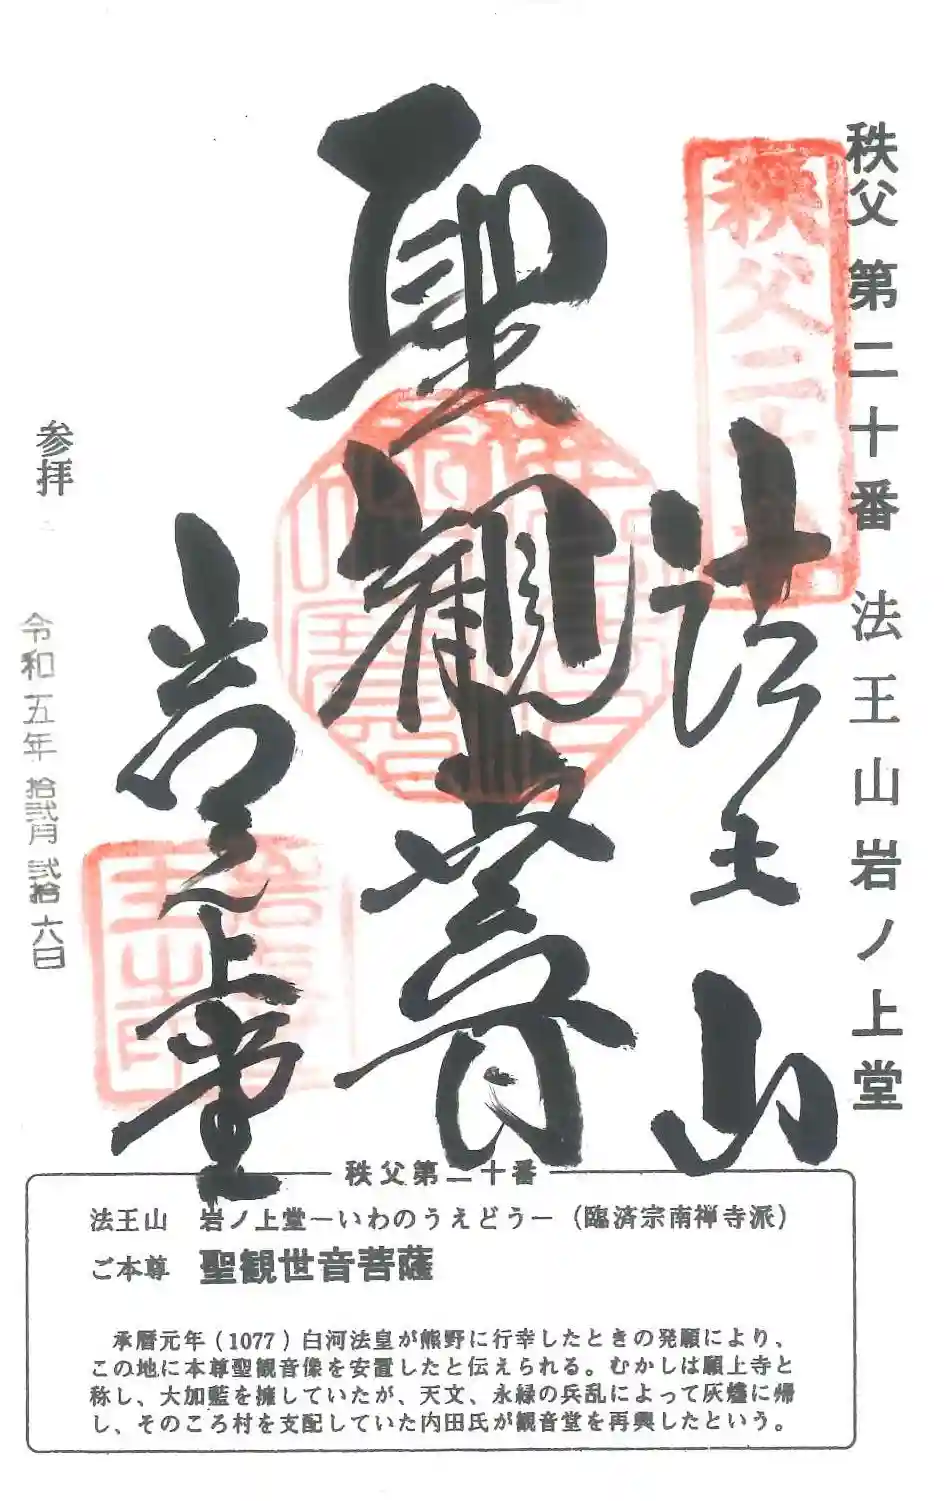 秩父第二十番 法王山岩ノ上堂
秩父二十番
法王山
聖観世音
岩之上堂
参拝
令和五年 拾弐月 弐拾六日
秩父第二十番
法王山 岩ノ上堂－いわのうえどう－（臨済宗南禅寺派）
ご本尊 聖観世音菩薩
承暦元年(1077)白河法皇が熊野に行幸したときの発願により、
この地に本尊聖観音像を安置したと伝えられる。むかしは願上寺と
称し、大加藍を擁していたが、天文、永緑の兵乱によって灰燼に帰
し、そのころ村を支配していた内田氏が観音堂を再興したという。